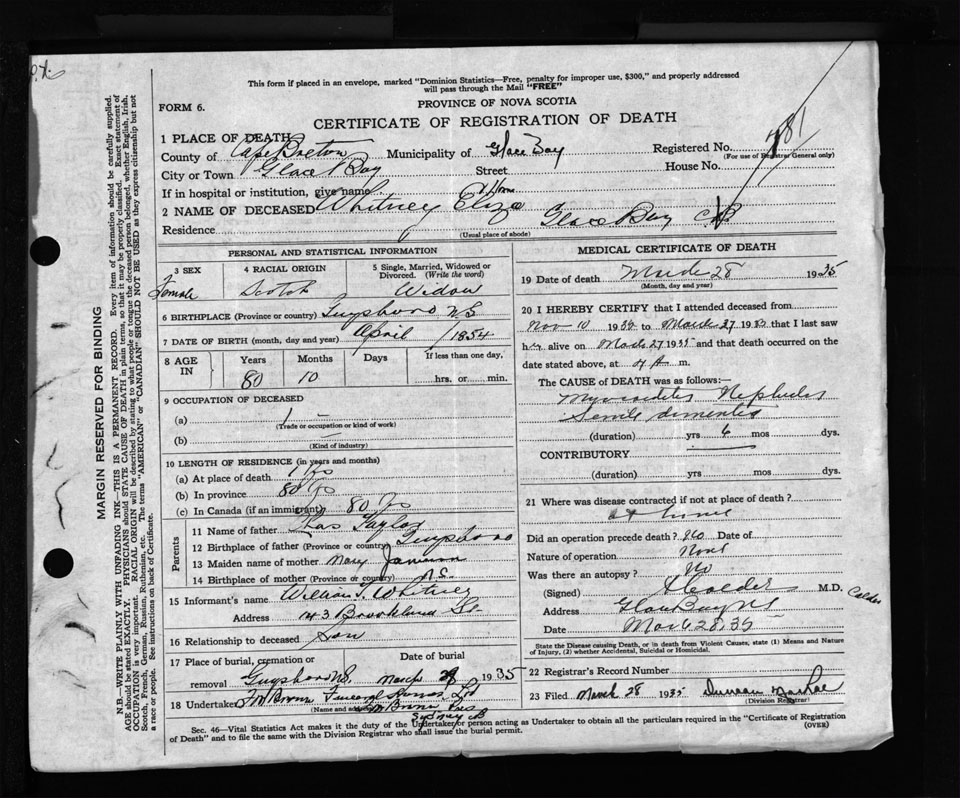 This form if placed in an envelope, marked "Dominion Statistics—Free, penalty for improper use, $300," and properly addressed
will pass through the Mail "FREE"
PROVINCE OF NOVA SCOTIA
FORM 6.
CERTIFICATE OF REGISTRATION OF DEATH
1 PLACE OF DEATH
County of Cape Breton Municipality of Glace Bay Registered No. 781
(For use of Registrar General only)
City or Town Glace Bay Street House No.
If in hospital or institution, give name Home
2 NAME OF DECEASED Whitney Eliza
Residence Glace Bay CB
(Usual place of abode)
PERSONAL AND STATISTICAL INFORMATION
3 SEX 4 RACIAL ORIGIN 5 Single, Married, Widowed or Divorced. (Write the word)
Female Scotch Widow
6 BIRTHPLACE (Province or country) Guysboro N.S
7 DATE OF BIRTH (month, day and year) April 1854
8 AGE IN Years Months Days If less than one day,
80 10 hrs. or min.
9 OCCUPATION OF DECEASED
(a)
(Trade or occupation or kind of work)
(b)
(Kind of industry)
10 LENGTH OF RESIDENCE (in years and months)
(a) At place of death
(b) In province 80 yrs
(c) In Canada (if an immigrant) 80 yrs
Parents
11 Name of father Thos Taylor
12 Birthplace of father (Province or country) Guysboro
13 Maiden name of mother Mary
14 Birthplace of mother (Province or country) N.S.
15 Informant's name William T. Whitney
Address 43 Brookland St.
16 Relationship to deceased Son
17 Place of burial, cremation or removal Date of burial
Guysboro N.S. March 1935
18 Undertaker Funeral Home Ltd
(Name and address)
Sydney CB
MEDICAL CERTIFICATE OF DEATH
19 Date of death March 28 1935
(Month, day and year)
20 I HEREBY CERTIFY that I attended deceased from
Nov 10 1934 to March 27 1935 that I last saw
her alive on March 27 1935 and that death occurred on the
date stated above, at 4 A m.
The CAUSE of DEATH was as follows:—
Myocarditis Nephritis
Senile dementia
(duration) yrs 6 mos dys.
CONTRIBUTORY
(duration) yrs mos dys.
21 Where was disease contracted if not at place of death?
at home
Did an operation precede death? No Date of
Nature of operation None
Was there an autopsy? No
(Signed) Calder M.D. Calder
Address Glace Bay NS
Date March 28, 35
State the Disease causing Death, or in death from Violent Causes, state (1) Means and Nature
of Injury, (2) whether Accidental, Suicidal or Homicidal.
22 Registrar's Record Number
23 Filed March 28 1935 Duncan MacRae
(Division Registrar)
Sec. 46—Vital Statistics Act makes it the duty of the Undertaker or person acting as Undertaker to obtain all the particulars required in the "Certificate of Registration
of Death" and to file the same with the Division Registrar who shall issue the burial permit. (OVER)
MARGIN RESERVED FOR BINDING
N.B.—WRITE PLAINLY WITH UNFADING INK—THIS IS A PERMANENT RECORD. Every item of information should be carefully supplied.
AGE should be stated EXACTLY. PHYSICIANS should STATE CAUSE OF DEATH in plain terms, so that it may be properly classified. Exact statement of
OCCUPATION is very important. RACIAL ORIGIN will be described by stating to what people or tongue the deceased person belonged, whether English, Irish,
Scotch, French, German, Russian, Ruthenian, etc. The terms "AMERICAN" or "CANADIAN" SHOULD NOT BE USED as they express citizenship but not
a race or people. See instructions on back of Certificate.